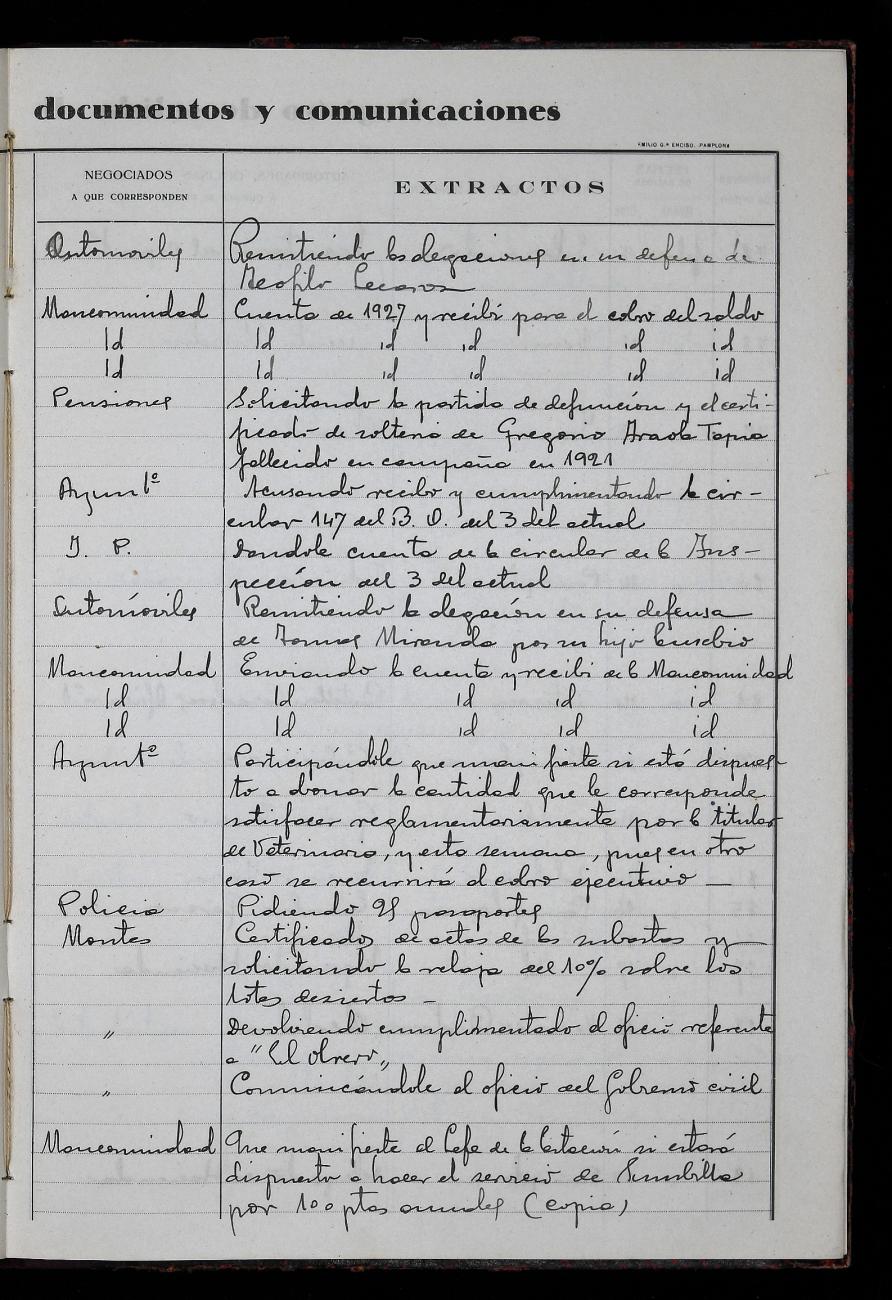 documentos y comunicaciones
EMILIO G.ª ENCISO. PAMPLONA
NEGOCIADOS
A QUE CORRESPONDEN
EXTRACTOS
Automoviles Remitiendo las alegaciones en su defensa de
Teofilo
Mancomunidad Cuenta de 1927 y recibí para el cobro del saldo
Id Id id id id id
Id Id id id id id
Pensiones Solicitando la partida de defunción y el certi-
ficado de solteria de Gregorio Araola Tapia
fallecido en campaña en 1921
Ayuntº Acusando recibo y cumplimentando la cir-
cular 147 del B. O. del 3 del actual
I. P. Dandole cuenta de la circular de la Ins-
pección del 3 del actual
Automóviles Remitiendo la alegación en su defensa
de Tomas Miranda por su hijo Eusebio
Mancomunidad Enviando la cuenta y recibí de la Mancomunidad
Id Id id id id
Id Id id id id
Ayuntº Participándole que manifieste si está dispues-
to a abonar la cantidad que le corresponde
satisfacer reglamentariamente por la titular
de Veterinaria, y esta semana, pues en otro
caso se recurrirá al cobro ejecutivo —
Policia Pidiendo 25 pasaportes
Montes Certificados de actas de las subastas y
solicitando la rebaja del 10% sobre los
lotes desiertos —
" Devolviendo cumplimentado el oficio referente
a "El Obrero"
" Comunicándole el oficio del Gobierno civil
Mancomunidad Que manifieste el Jefe de la Estación si estará
dispuesto a hacer el servicio de Sumbilla
por 100 ptas anuales (copia)